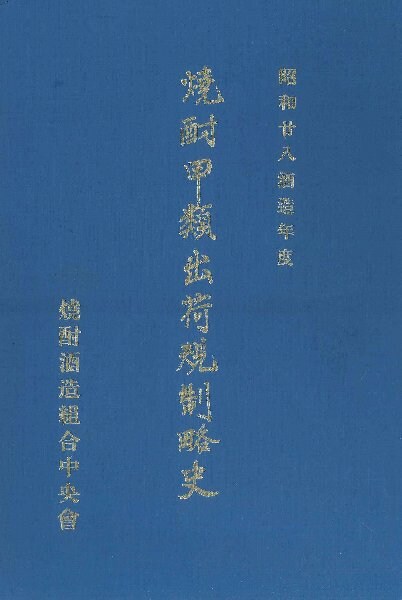 昭和廿八酒造年度
燒酎甲類出荷規制略史
燒酎酒造組合中央會